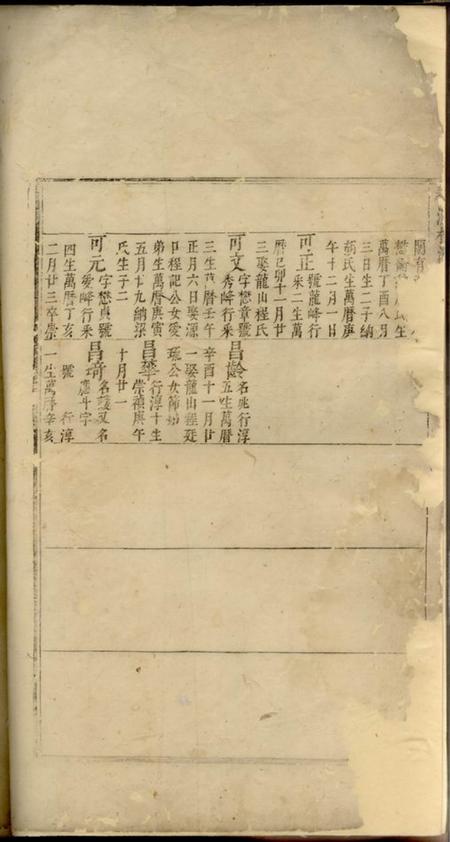 萬曆丁酉八月
三日生二子納
胡氏生萬曆庚
午十二月一日
可正 號龍峰行
采二生萬
曆己卯十一月廿
三娶龍山程氏
可文 字懋章號
秀峰行采
三生萬曆壬午
正月六日娶源
程記公女愛
弟生萬曆庚寅
五月廿九納梁
氏生子二
可元 字懋貞號
愛峰行采
四生萬曆丁亥
二月廿三卒崇
昌齡 名兆行淳
五生萬曆
辛酉十一月廿
一娶龍山程廷
琉公女
昌華 行淳十生
崇禎庚午
十月廿一
昌琦 名護又名
應斗字
號 行淳
一生萬曆辛亥